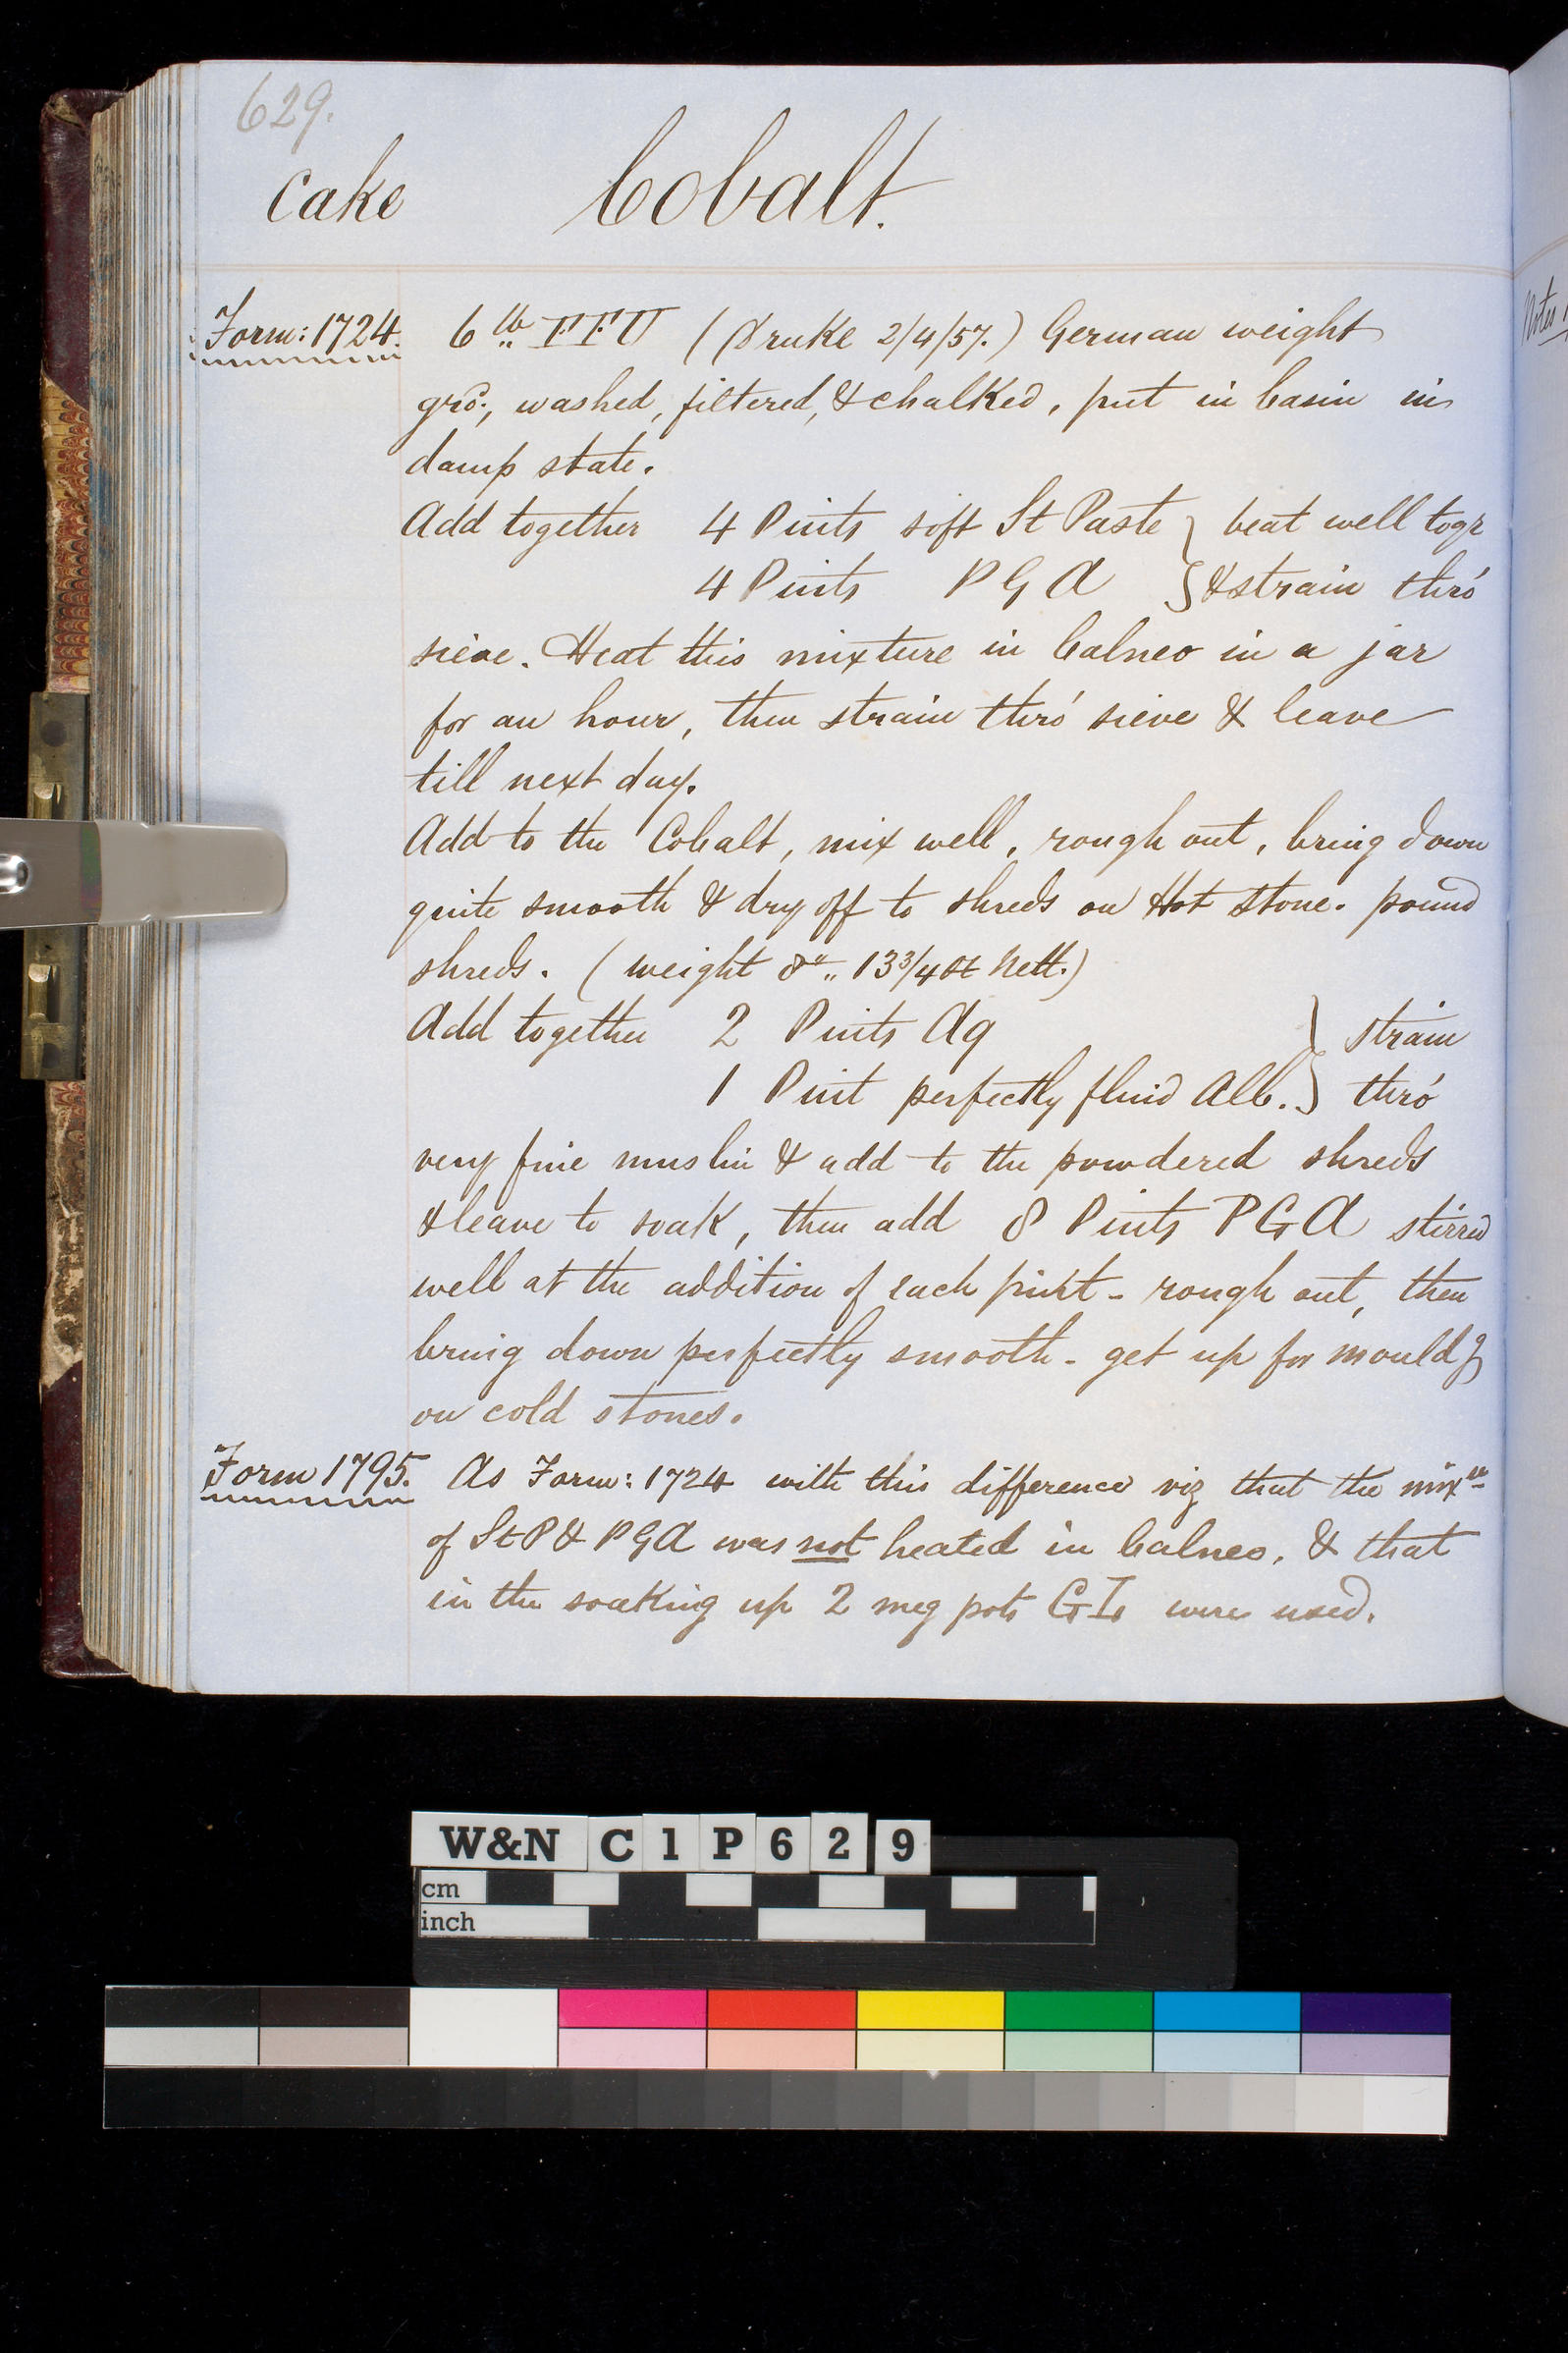 629.
Cake Cobalt.
Form: 1724. 6 lb FFU (Druke 2/4/57.) German weight
grd., washed, filtered, & chalked, put in basin in
damp state.
Add together 4 Pints soft St Paste } beat well togr
4 Pints P G A } & strain thro'
sieve. Heat this mixture in balneo in a jar
for an hour, then strain thro' sieve & leave
till next day.
Add to the Cobalt, mix well, rough out, bring down
quite smooth & dry off to shreds on Hot Stone. pound
shreds. (weight 8 lb 13 3/4 oz Nett.)
Add together 2 Pints Aq } strain
1 Pint perfectly fluid Alb. } thro'
very fine muslin & add to the powdered shreds
& leave to soak, then add 8 Pints PGA stirred
well at the addition of each pint - rough out, then
bring down perfectly smooth - get up for mouldg
on cold stones.
Form 1795. As Form: 1724 with this difference viz that the mixre
of St P & PGA was not heated in balneo, & that
in the soaking up 2 meg pots GI were used.
Notes
W&N C1P629
cm
inch